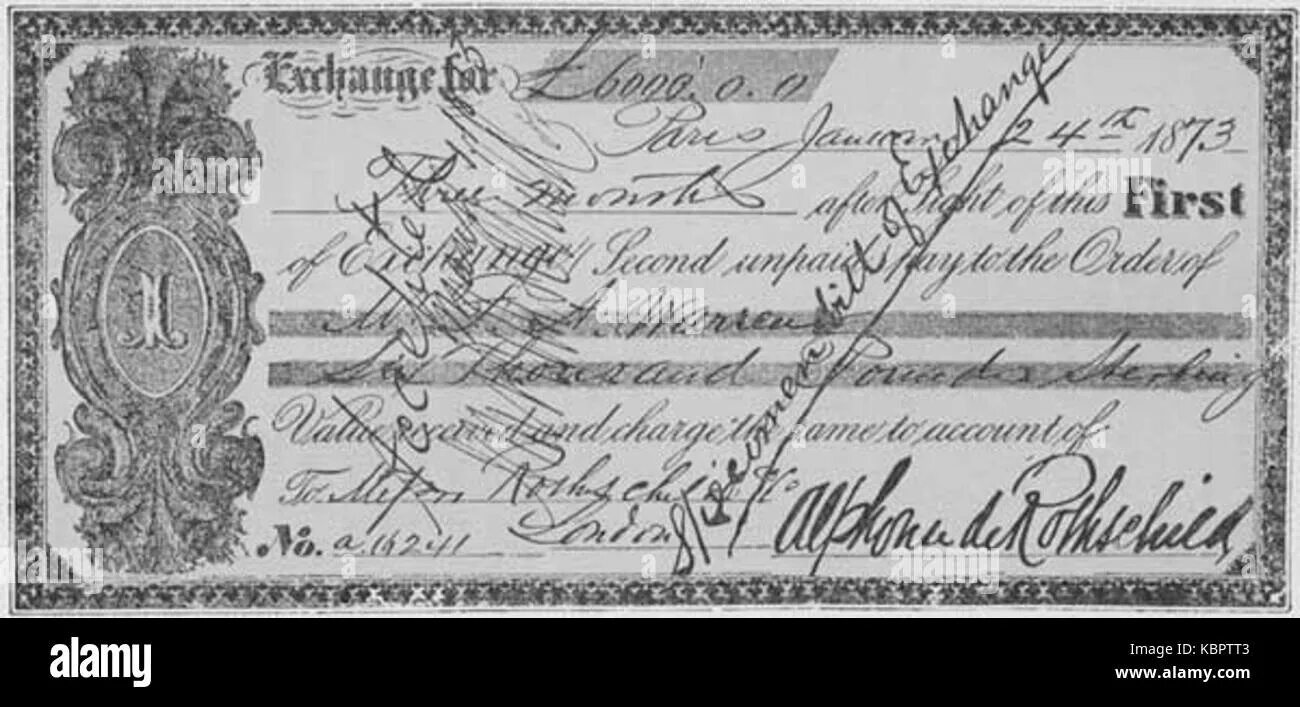 Exchange for £6000.0.0
Paris January 24th 1873
Three months after sight of this First
of Exchange Second unpaid pay to the Order of
A. Warren
Six Thousand Pounds Sterling
Value received and charge the same to account of
To Messrs Rothschild
London
No. a 16241
Alphonse de Rothschild
bill of Exchange
alamy stock photo
a alamy
Image ID: KBPTT3
www.alamy.com